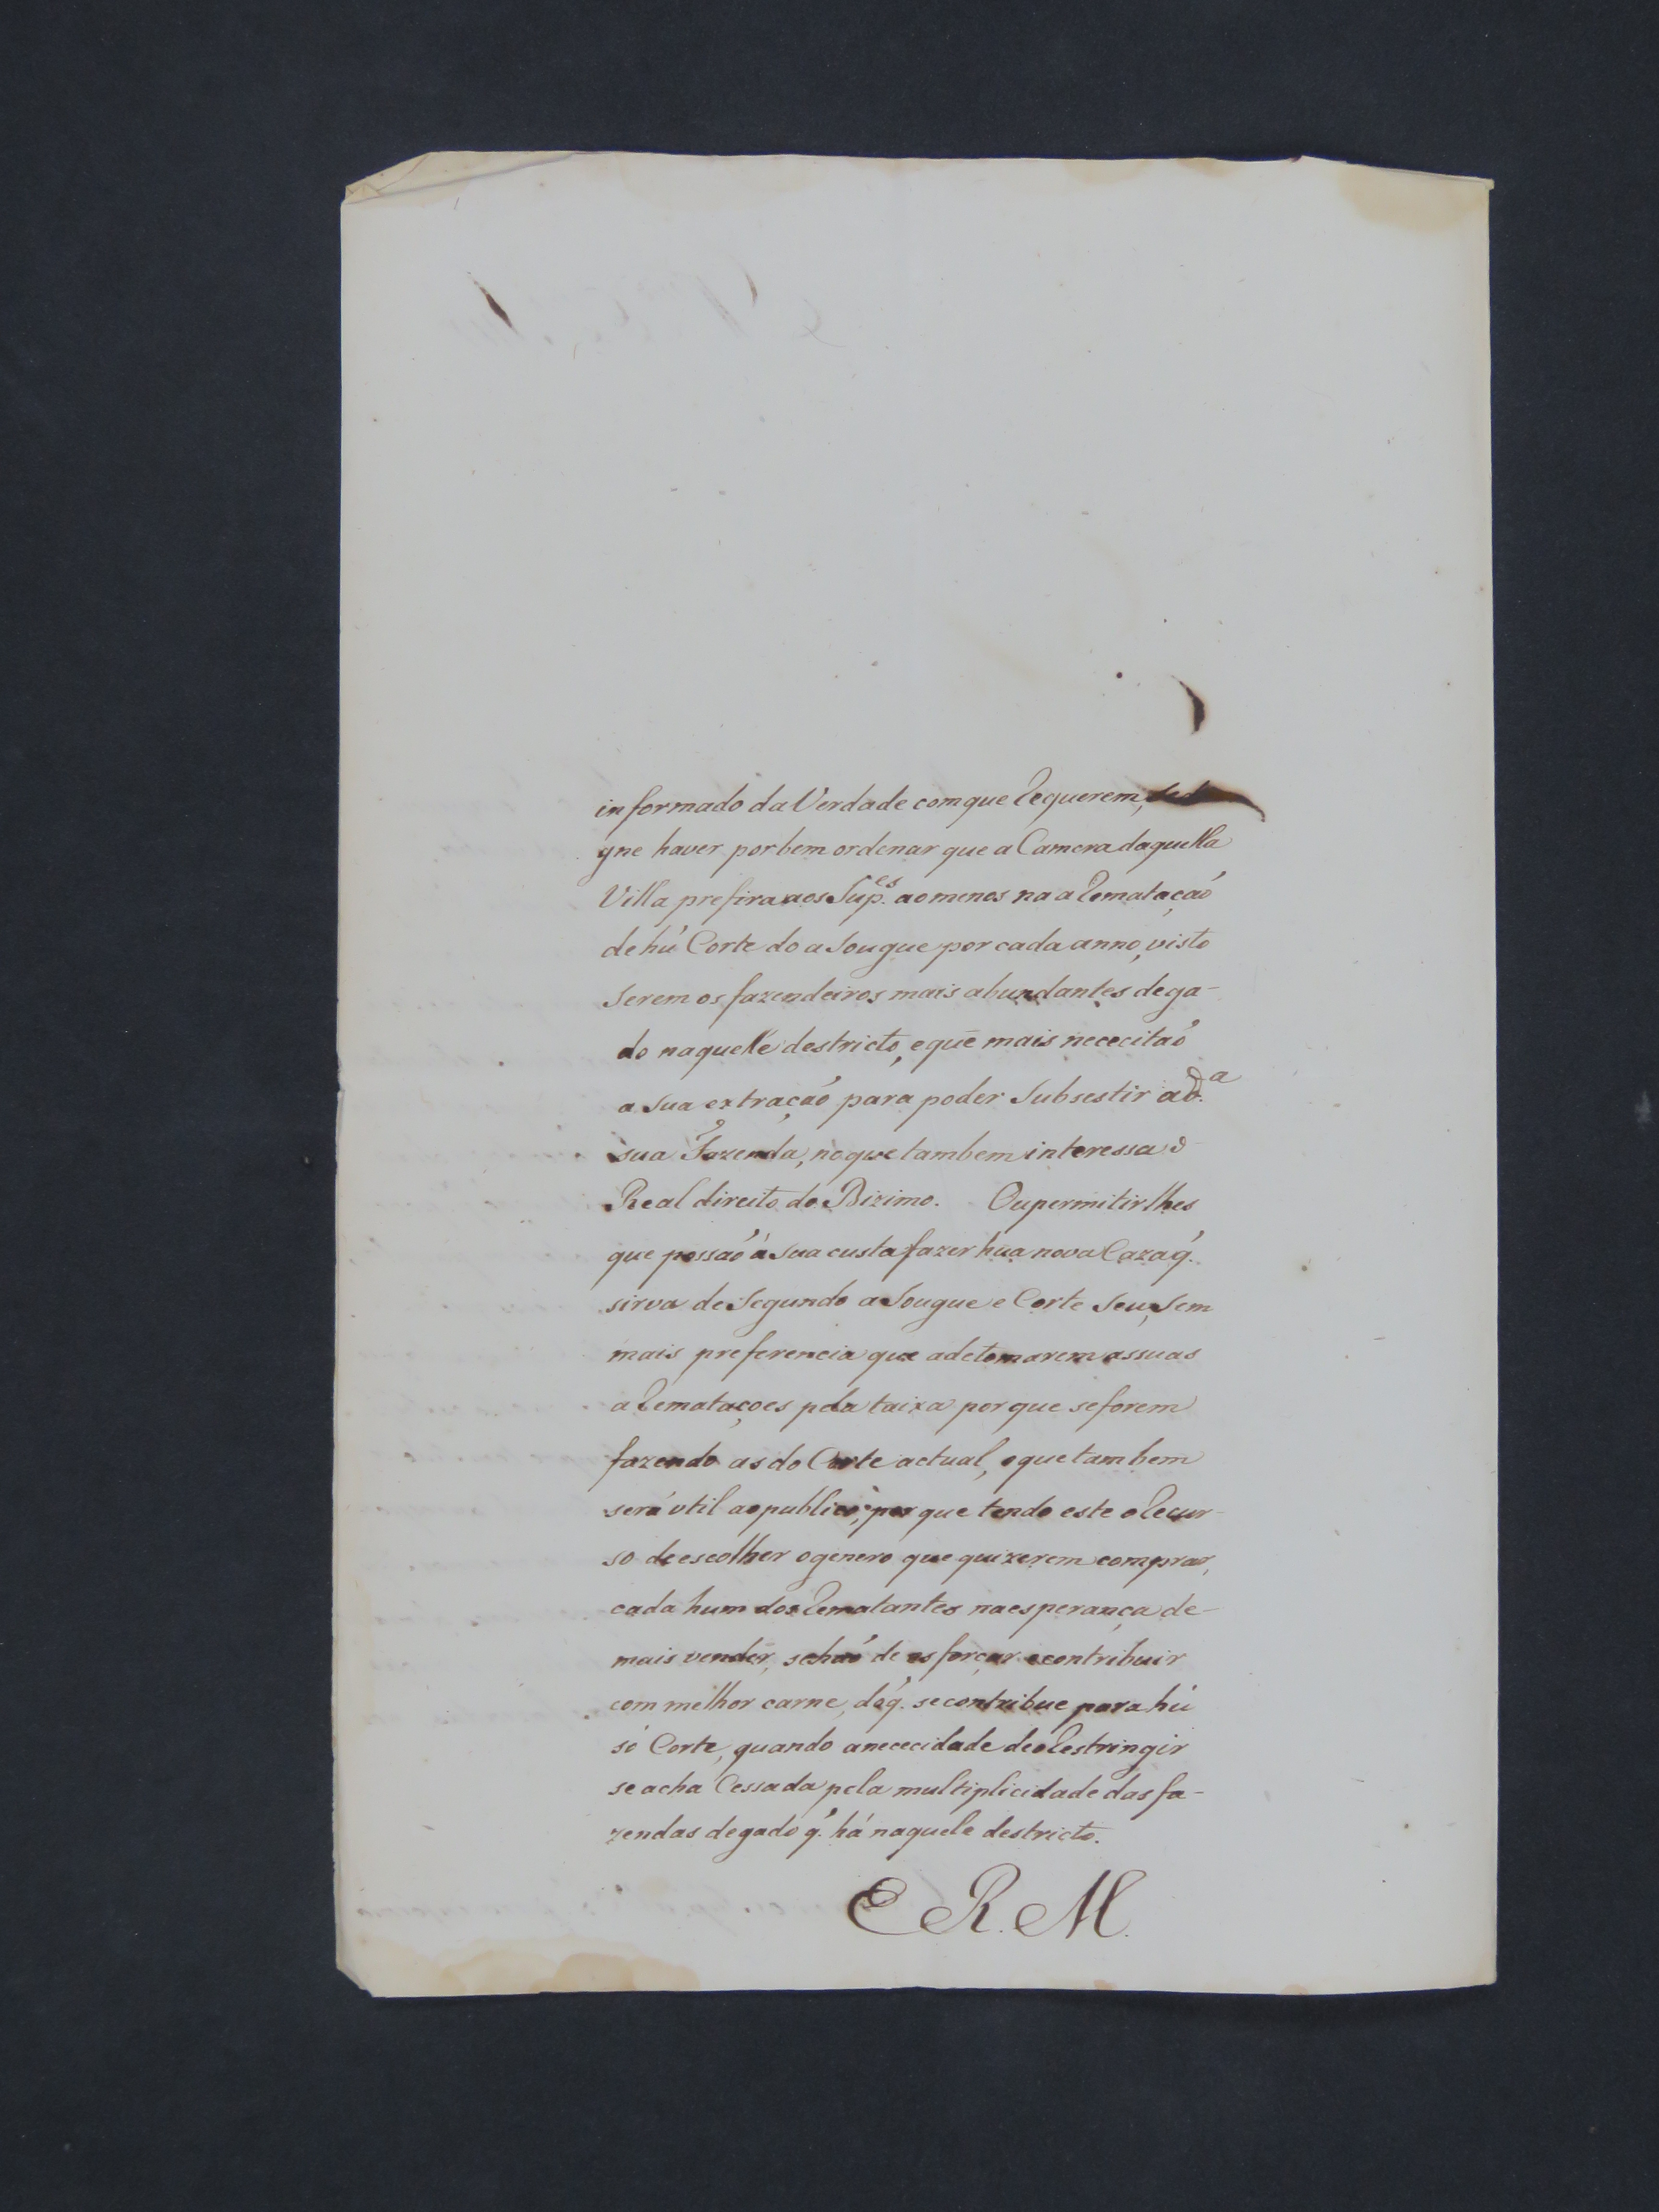 informado da Verdade com que Requerem, se di
gne haver por bem ordenar que a Camera daquella
Villa prefira aos Sup.es ao menos na aRematação
de hú Corte do aSougue por cada anno, visto
serem os fazendeiros mais abundantes de ga-
do naquelle destricto, e que mais nececitaõ
a sua extração para poder Subsestir a d.a
sua Fazenda, no que tambem interessa o
Real direito do Dizimo. Ou permitirlhes
que possaõ á sua custa fazer hũa nova Caza q.
sirva de Segundo aSougue e Corte Seu, Sem
mais preferencia que a de tomarem as suas
aRemataçoes pela taixa por que se forem
fazendo as do Corte actual, o que tambem
será util ao publico, por que tendo este o Recur-
so de escolher o genero que quizerem comprar,
cada hum dos Rematantes na esperança de-
mais vender, se haõ de esforçar e contribuir
com melhor carne, do q. se contribue para hú
só Corte, quando a nececidade de o Restringir
se acha Cessada pela multiplicidade das fa-
zendas de gado q. há naquele destricto.
E. R. M.